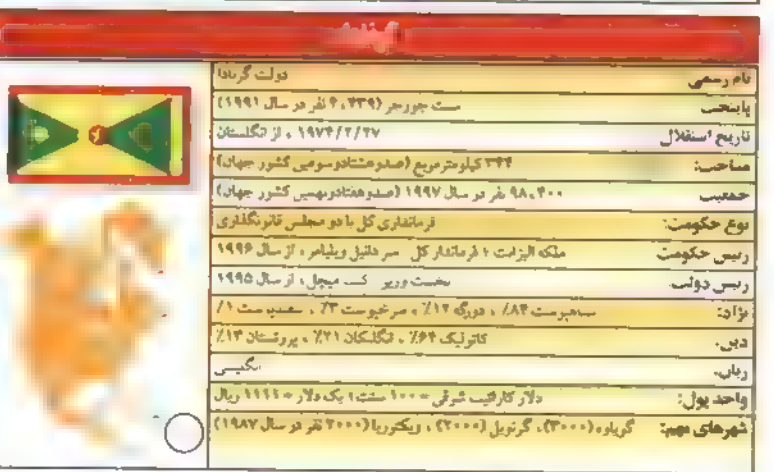 نام رسمی دولت گرنادا
پایتخت سنت جورجز (۴،۴۳۹ نفر در سال ۱۹۹۱)
تاریخ استقلال ۱۹۷۴/۲/۲۷ ، از انگلستان
مساحت: ۳۴۴ کیلومترمربع (صدوهشتادوسومین کشور جهان)
جمعیت ۹۸،۴۰۰ نفر در سال ۱۹۹۷ (صدوهفتادونهمین کشور جهان)
نوع حکومت: فرمانداری کل با دو مجلس قانونگذاری
رییس حکومت ملکه الیزابت ؛ فرماندار کل سر دانیل ویلیامز ، از سال ۱۹۹۶
رییس دولت نخست وزیر کیت میچل ، از سال ۱۹۹۵
نژاد: سیاهپوست ۸۴٪ ، دورگه ۱۲٪ ، سرخپوست ۳٪ ، سفیدپوست ۱٪
دین. کاتولیک ۶۴٪ ، انگلیکان ۲۱٪ ، پروتستان ۱۳٪
زبان. انگلیسی
واحد پول: دلار کارائیب شرقی = ۱۰۰ سنت ؛ یک دلار = ۱۱۱۲ ریال
شهرهای مهم: گویاوه (۳۰۰۰) ، گرنویل (۲۰۰۰) ، ویکتوریا (۲۰۰۰ نفر در سال ۱۹۸۷)